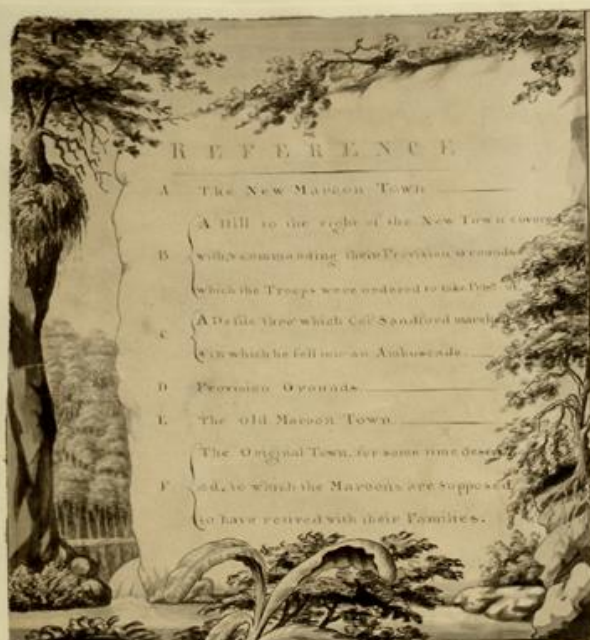 REFERENCE
A The New Maroon Town
A Hill to the right of the New Town covered
B with & commanding their Provision Grounds
which the Troops were ordered to take Post
C A Defile thro' which Col. Sandford march
& in which he fell into an Ambuscade
D Provision Grounds
E The Old Maroon Town
The Original Town, for some time desert
F ed, to which the Maroons are supposed
to have retired with their Families.